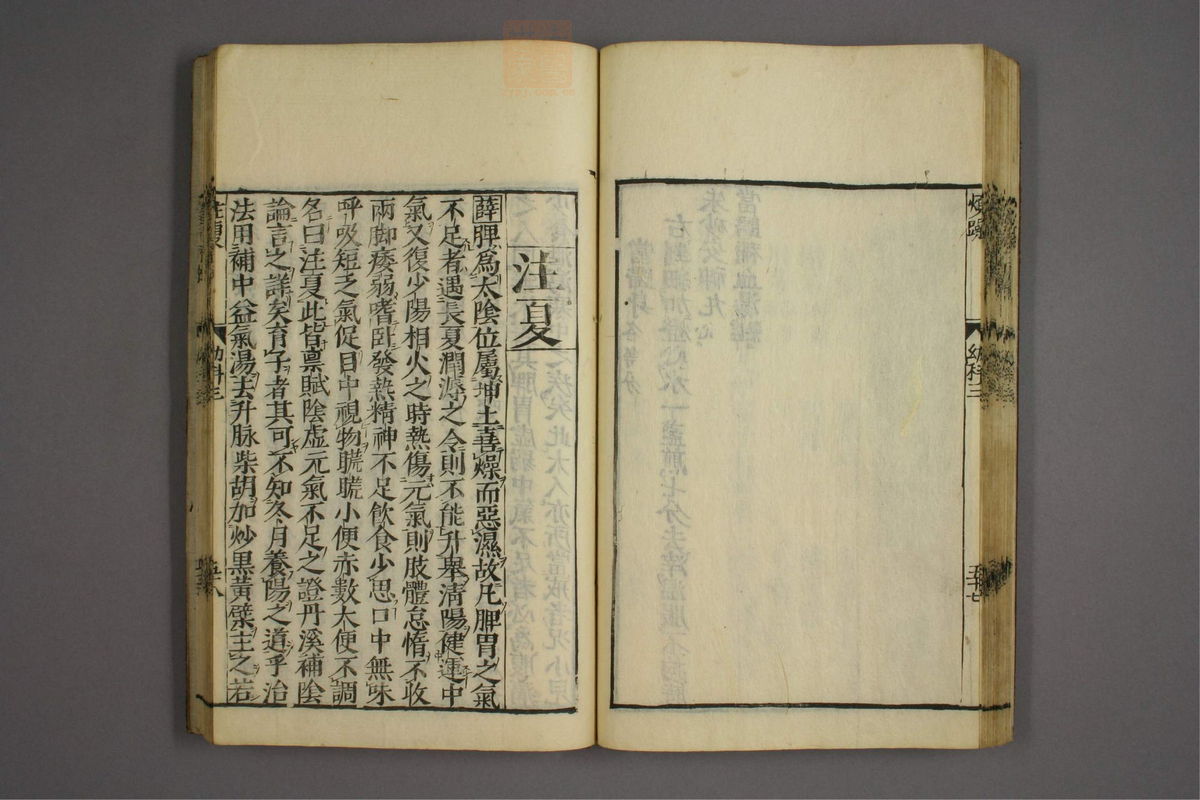 煩躁
幼科三
五十七
注夏
薛脾爲太陰位屬坤土喜燥而惡濕故凡脾胃之氣
不足者遇長夏潤溽之令則不能升舉淸陽健運中
氣又復少陽相火之時熱傷元氣則肢體怠惰不收
兩脚痿弱嗜卧發熱精神不足飲食少思口中無味
呼吸短乏氣促目中視物䀮䀮小便赤數大便不調
名曰注夏此皆禀賦陰虚元氣不足之證丹溪補陰
論言之詳矣育子者其可不知冬月養陽之道乎治
法用補中益氣湯去升脉柴胡加炒黑黃檗主之若
注夏
幼科三
五十八